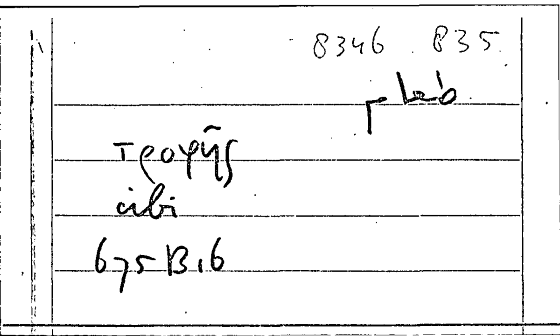 8346 835
τροφῆς
cibi
675 B.6